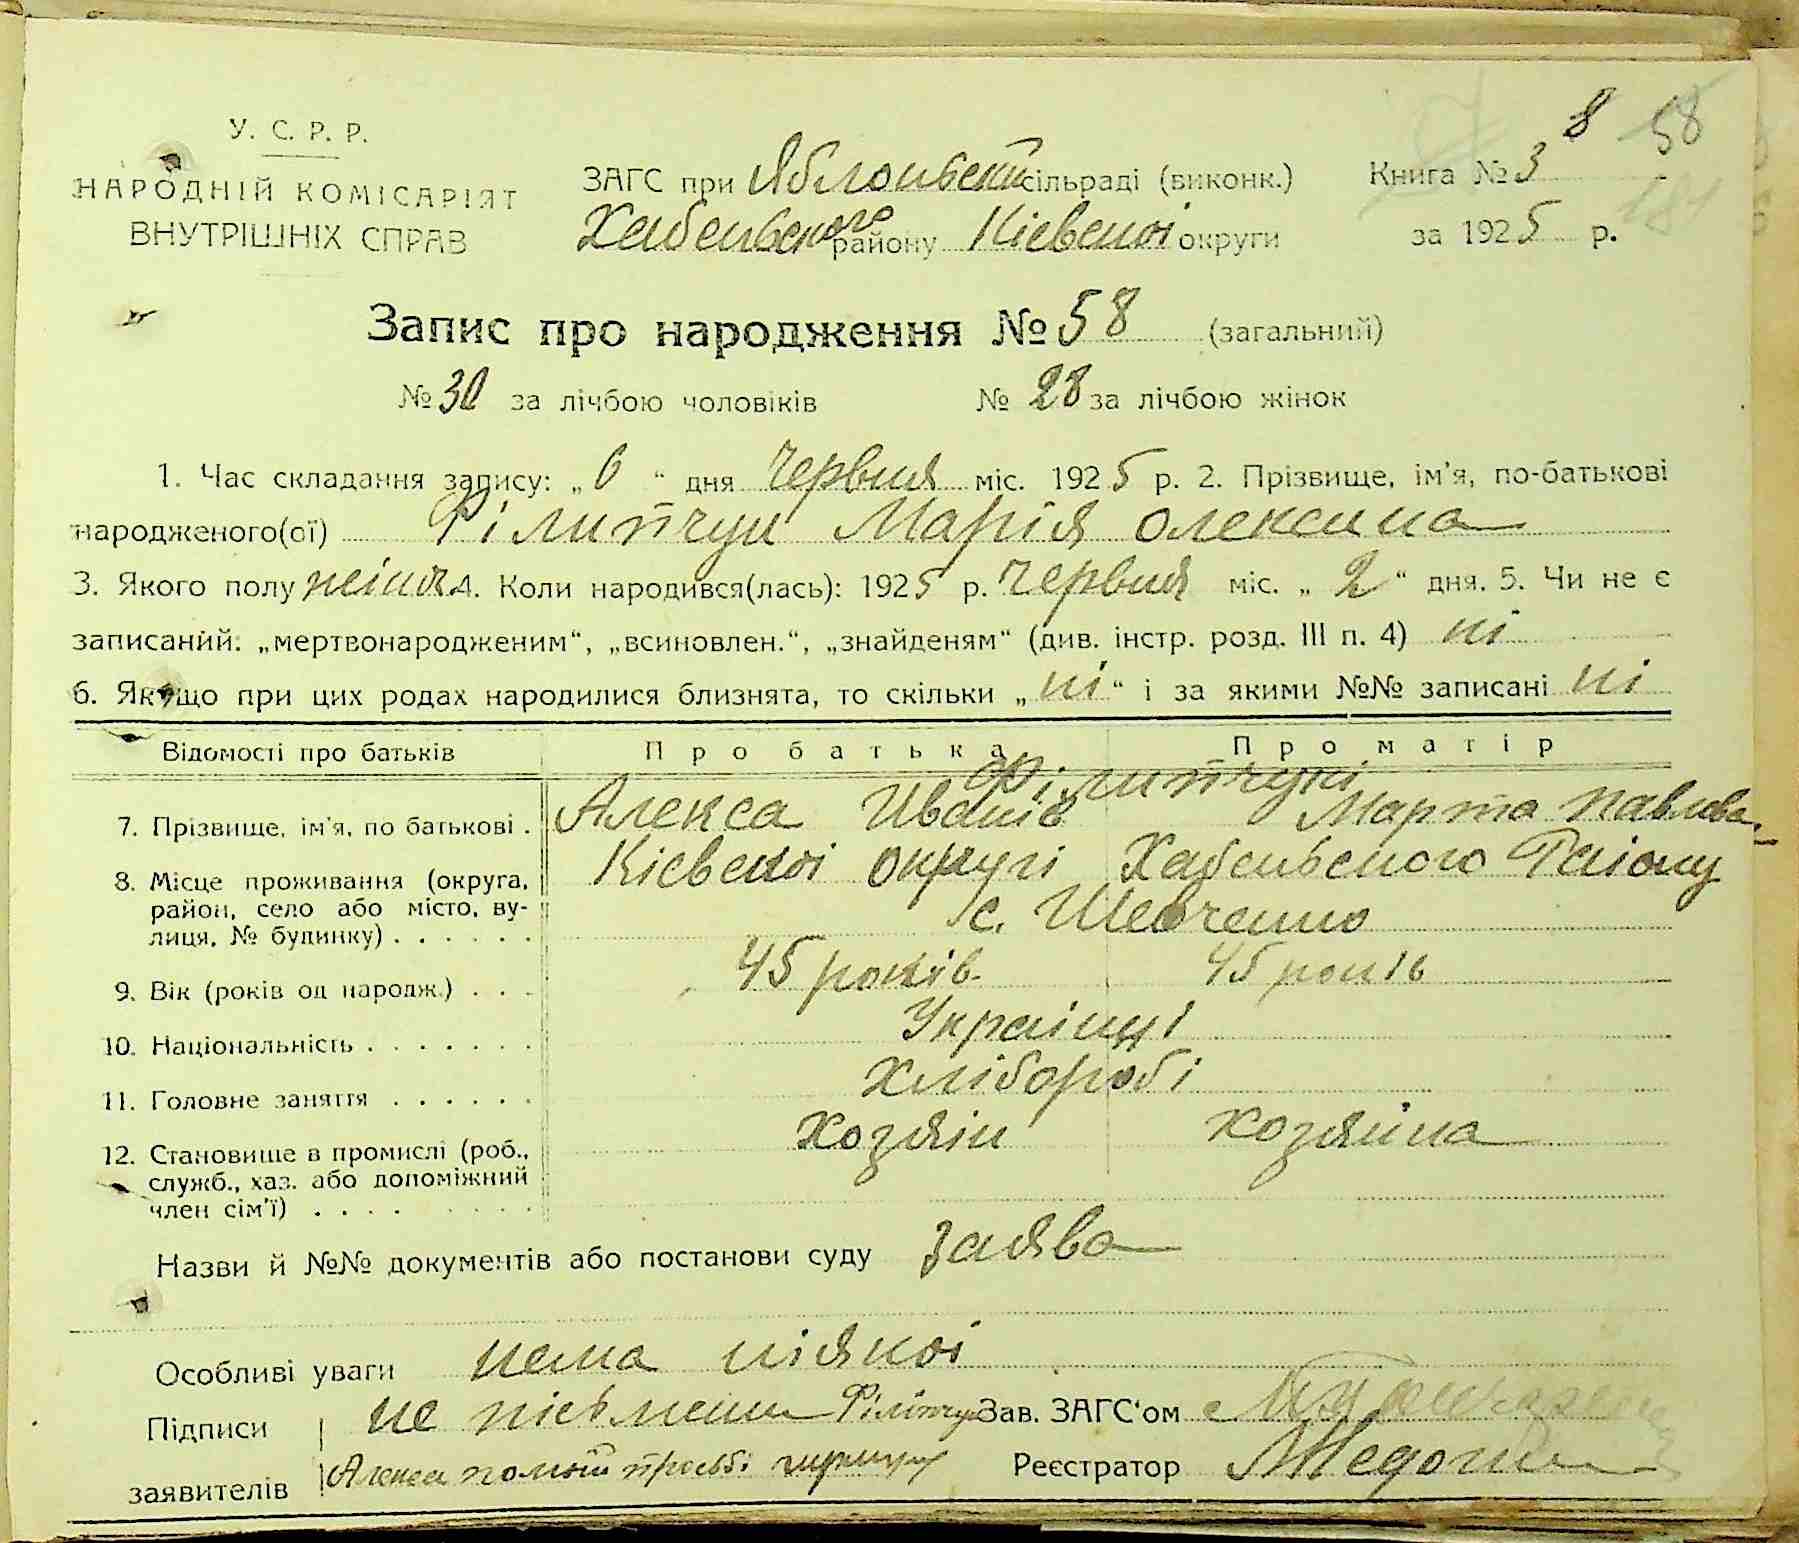 8 58
У. С. Р. Р.
НАРОДНІЙ КОМІСАРІЯТ
ВНУТРІШНІХ СПРАВ
ЗАГС при Яблонвській сільраді (виконк.)
Хабенського району Кієвської округи
Книга № 3
за 1925 р.
Запис про народження № 58 (загальний)
№ 30 за лічбою чоловіків № 28 за лічбою жінок
1. Час складання запису: „6“ дня Червня міс. 1925 р. 2. Прізвище, ім'я, по-батькові
народженого(ої) Філипчук Марія Олексина
3. Якого полу жіноя 4. Коли народився(лась): 1925 р. Червня міс. „2“ дня. 5. Чи не є
записаний: „мертвонародженим“, „всиновлен.“, „знайденям“ (див. інстр. розд. III п. 4) ні
6. Якщо при цих родах народилися близнята, то скільки „ні“ і за якими №№ записані ні
Відомості про батьків Про батька Про матір
Філипчукі
7. Прізвище, ім'я, по батькові . Алекса Иванів Марта Павлова
8. Місце проживання (округа, Кієвскоі округі Хабенського Раіону
район, село або місто, ву- с. Шевченко
лиця, № будинку) . . . . . .
9. Вік (років од народж.) . . . 45 років. 45 років
10. Національність . . . . . . . Українці
11. Головне заняття . . . . . . Хліборобі
12. Становище в промислі (роб., Хозяін хозяйка
служб., хаз. або допоміжний
член сім'ї) . . . . . . . . .
Назви й №№ документів або постанови суду заява
Особливі уваги нема ніякоі
Підписи не пісьмени Філіпчук Зав. ЗАГС'ом
заявителів Алекса просьбі Реєстратор